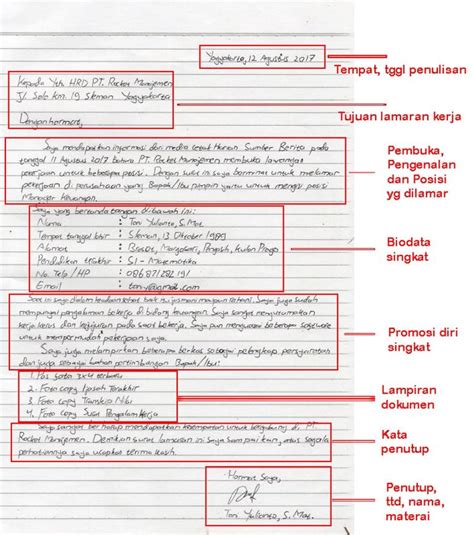 Yogyakarta, 12 Agustus 2017
Tempat, tggl penulisan
Kepada Yth. HRD PT. Rocket Manajemen
Jl. Solo km. 19 Sleman Yogyakarta
Tujuan lamaran kerja
Dengan hormat,
Saya mendapatkan informasi dari media cetak Harian Sumber Berita pada
tanggal 11 Agustus 2017 bahwa PT. Rocket Manajemen membuka lowongan
pekerjaan untuk beberapa posisi. Dengan surat ini saya berniat untuk melamar
pekerjaan di perusahaan yang Bapak/Ibu pimpin yaitu untuk mengisi posisi
Manager Keuangan.
Pembuka,
Pengenalan
dan Posisi
yg dilamar
Saya yang bertanda tangan dibawah ini:
Nama : Toni Yulianto, S.Mat.
Tempat tanggal lahir : Sleman, 13 Oktober 1989
Alamat : Margosari, Pengasih, Kulon Progo
Pendidikan terakhir : S1 - Matematika
No. Telp / HP :
Email :
Biodata
singkat
Saat ini saya dalam keadaan sehat baik jasmani maupun rohani. Saya juga sudah
mempunyai pengalaman bekerja di bidang keuangan. Saya sangat mengutamakan
kerja keras dan kejujuran pada saat bekerja. Saya pun menguasai beberapa software
untuk mempermudah pekerjaan saya.
Saya juga melampirkan beberapa berkas sebagai pelengkap persyaratan
dan juga sebagai bahan pertimbangan Bapak/Ibu:
Promosi diri
singkat
1. Pas foto 3x4 terbaru
2. Foto copy Ijasah Terakhir
3. Foto copy Transkip Nilai
4. Foto copy Surat Pengalaman Kerja
Lampiran
dokumen
Saya sangat berharap mendapatkan kesempatan untuk bergabung di PT.
Rocket Manajemen. Demikian surat lamaran ini saya sampaikan, atas segala
perhatiannya saya ucapkan terima kasih.
Kata
penutup
Hormat Saya,
Toni Yulianto, S. Mat.
Penutup,
ttd, nama,
materai